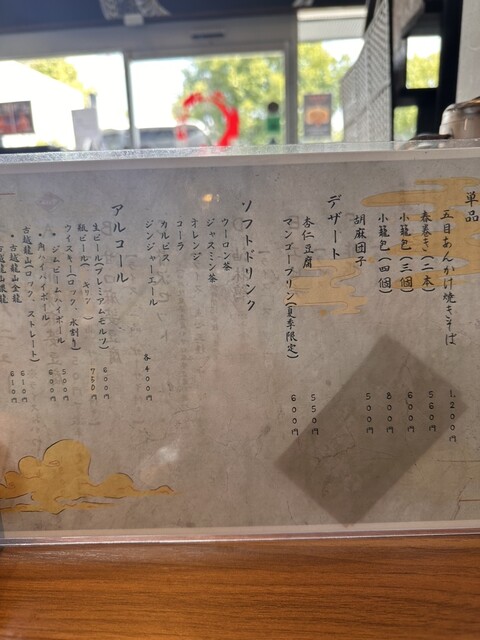 単品
五目あんかけ焼きそば 1,200円
春巻き(二本) 560円
小籠包(三個) 600円
小籠包(四個) 800円
胡麻団子 500円
デザート
杏仁豆腐 550円
マンゴープリン(夏季限定) 600円
ソフトドリンク
ウーロン茶
ジャスミン茶
オレンジ
コーラ
カルピス
ジンジャーエール 各400円
アルコール
生ビール(プレミアムモルツ) 600円
瓶ビール(キリン) 750円
ウイスキー(ロック、水割り) 500円
・ジムビームハイボール 600円
・角ハイボール 600円
古越龍山(ロック、ストレート)
・古越龍山金龍 610円